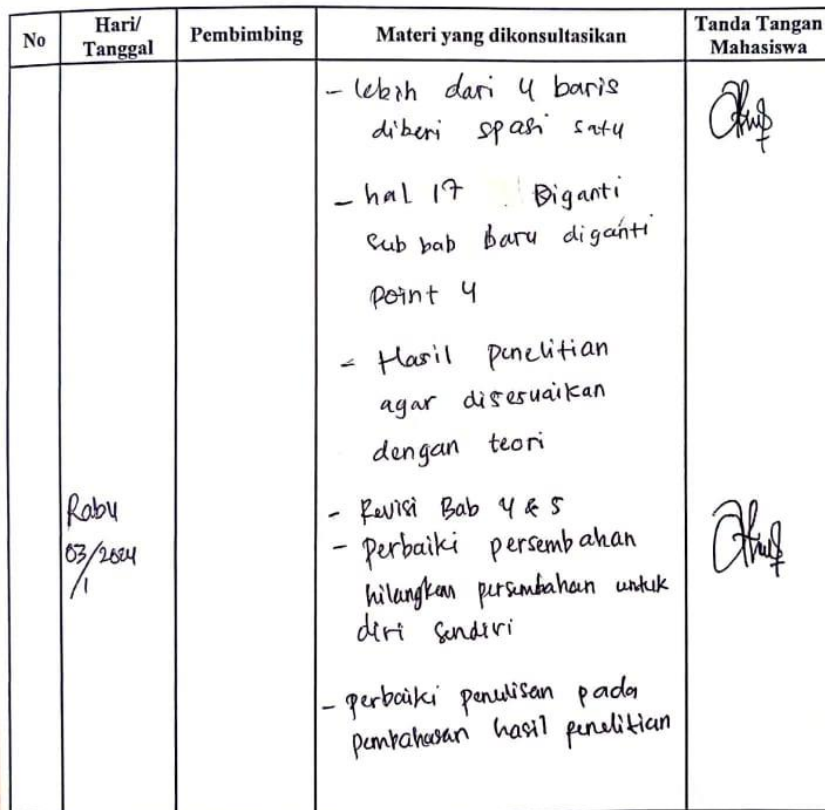 No
Hari/
Tanggal
Pembimbing
Materi yang dikonsultasikan
Tanda Tangan
Mahasiswa
- lebih dari 4 baris
diberi spasi satu
- hal 17 Diganti
Sub bab baru diganti
Point 4
- Hasil penelitian
agar disesuaikan
dengan teori
Rabu
03/2024
/1
- Revisi Bab 4 & 5
- Perbaiki persembahan
hilangkan persembahan untuk
diri sendiri
- perbaiki penulisan pada
pembahasan hasil penelitian